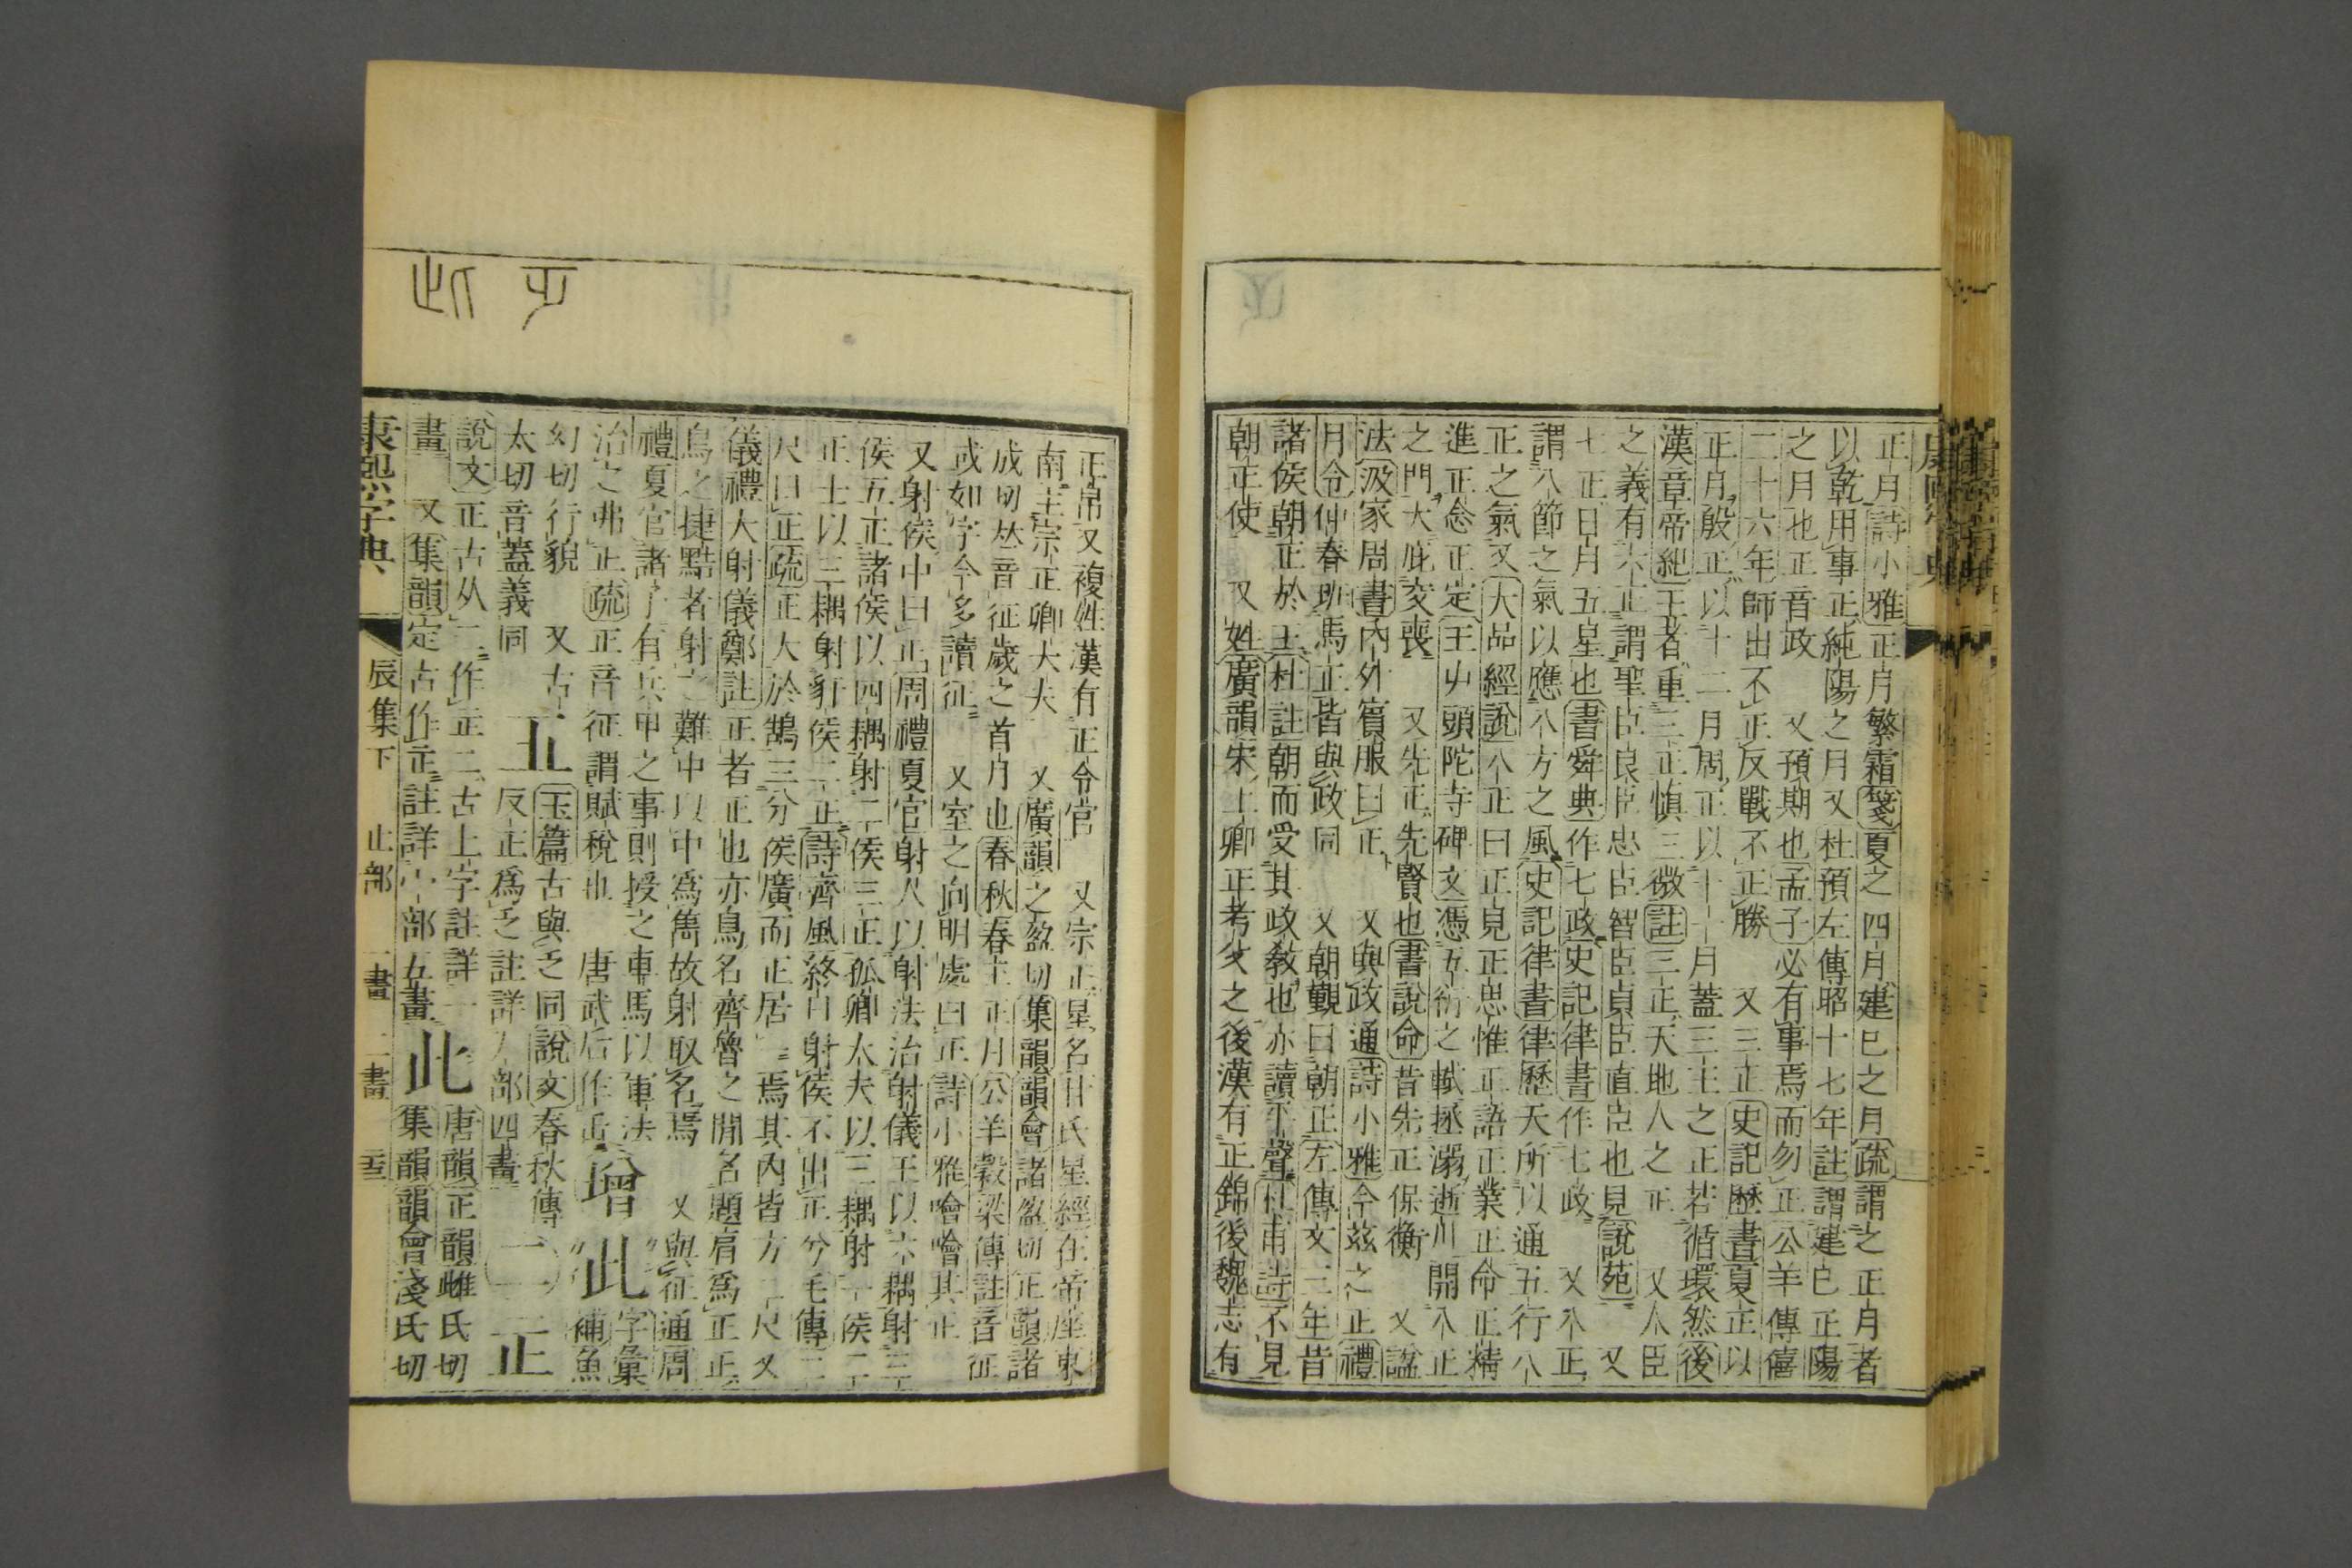 正月詩小雅正月繁霜箋夏之四月建巳之月疏謂之正月者
以乾用事正純陽之月又杜預左傳昭十七年註謂建巳正陽
之月也正音政 又預期也孟子必有事焉而勿正公羊傳僖
二十六年師出不正反戰不正勝 又三正史記歷書夏正以
正月殷正以十二月周正以十一月蓋三王之正若循環然後
漢章帝紀王者重三正愼三微註三正天地人之正 又人臣
之義有六正謂聖臣良臣忠臣智臣貞臣直臣也見說苑 又
七正日月五星也書舜典作七政史記律書作七政 又八正
謂八節之氣以應八方之風史記律書律歷天所以通五行八
正之氣又大品經說八正曰正見正思惟正語正業正命正精
進正念正定王屮頭陀寺碑文憑五衍之軾拯溺逝川開八正
之門大庇交喪 又先正先賢也書說命昔先正保衡 又諡
法汲家周書內外賓服曰正 又與政通詩小雅今茲之正禮
月令仲春班馬正皆與政同 又朝覲曰朝正左傳文三年昔
諸侯朝正於王杜註朝而受其政敎也亦讀平聲杜甫詩不見
朝正使 又姓廣韻宋上卿正考父之後漢有正錦後魏志有
正帛又複姓漢有正令官 又宗正星名甘氏星經在帝座東
南主宗正卿大夫 又廣韻之盈切集韻韻會諸盈切正韻諸
成切𠀤音征歲之首月也春秋春王正月公羊穀梁傳註音征
或如字今多讀征 又室之向明處曰正詩小雅噲噲其正
又射侯中曰正周禮夏官射人以射法治射儀王以六耦射三
侯五正諸侯以四耦射二侯三正孤卿大夫以三耦射一侯二
正士以三耦射豻侯二正詩齊風終日射侯不出正兮毛傳二
尺曰正疏正大於鵠三分侯廣而正居一焉其內皆方二尺又
儀禮大射儀鄭註正者正也亦鳥名齊魯之閒名題肩爲正正
鳥之捷黠者射之難中以中爲雋故射取名焉 又與征通周
禮夏官諸子有兵甲之事則授之車馬以軍法
治之弗正疏正音征謂賦稅也 唐武后作𠙺 增 此 字彙補魚
幻切行貌 又古 𣥄 玉篇古與乏同說文春秋傳
太切音蓋義同 反正爲乏註詳丿部四畫 一 二 𤴓
說文正古从二作𤴓二古上字註詳一
畫 又集韻定古作𤴓註詳宀部五畫 此 唐韻正韻雌氏切
集韻韻會淺氏切
康熙字典 辰集下 止部 一畫 二畫